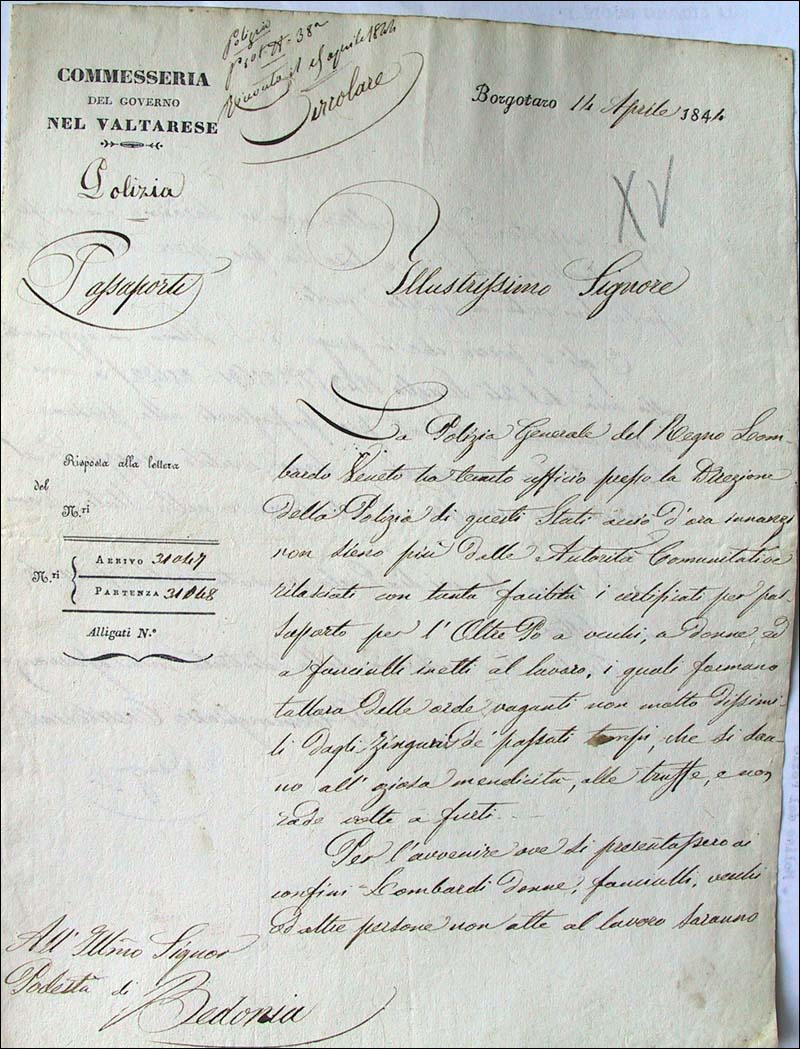 Polizia
Prot. N. 38a
Ricevuta il 15 aprile 1844
Circolare
COMMESSERIA
DEL GOVERNO
NEL VALTARESE
Borgotaro 14 Aprile 1844
Polizia
XV
Passaporti
Illustrissimo Signore
La Polizia Generale del Regno Lom-
bardo Veneto ha tenuto ufficio presso la Direzione
della Polizia di questi Stati acciò d'ora innanzi
non sieno più dalle Autorità Comunitative
rilasciati con tanta facilità i certificati per pas-
saporto per l'Oltre Po a vecchi, a donne ed
a fanciulli inetti al lavoro, i quali formano
tallora delle orde vaganti non molto dissimi-
li dagli Zingari de' passati tempi, che si dan-
no all'oziosa mendicità, alle truffe, e non
rade volte a furti.
Per l'avvenire ove si presentassero ai
confini Lombardi donne, fanciulli, vecchi
ed altre persone non atte al lavoro saranno
Risposta alla lettera
del
N.ri
N.ri
ARRIVO 31047
PARTENZA 31048
Alligati N.°
All' Illmo Signor
Podestà di
Bedonia